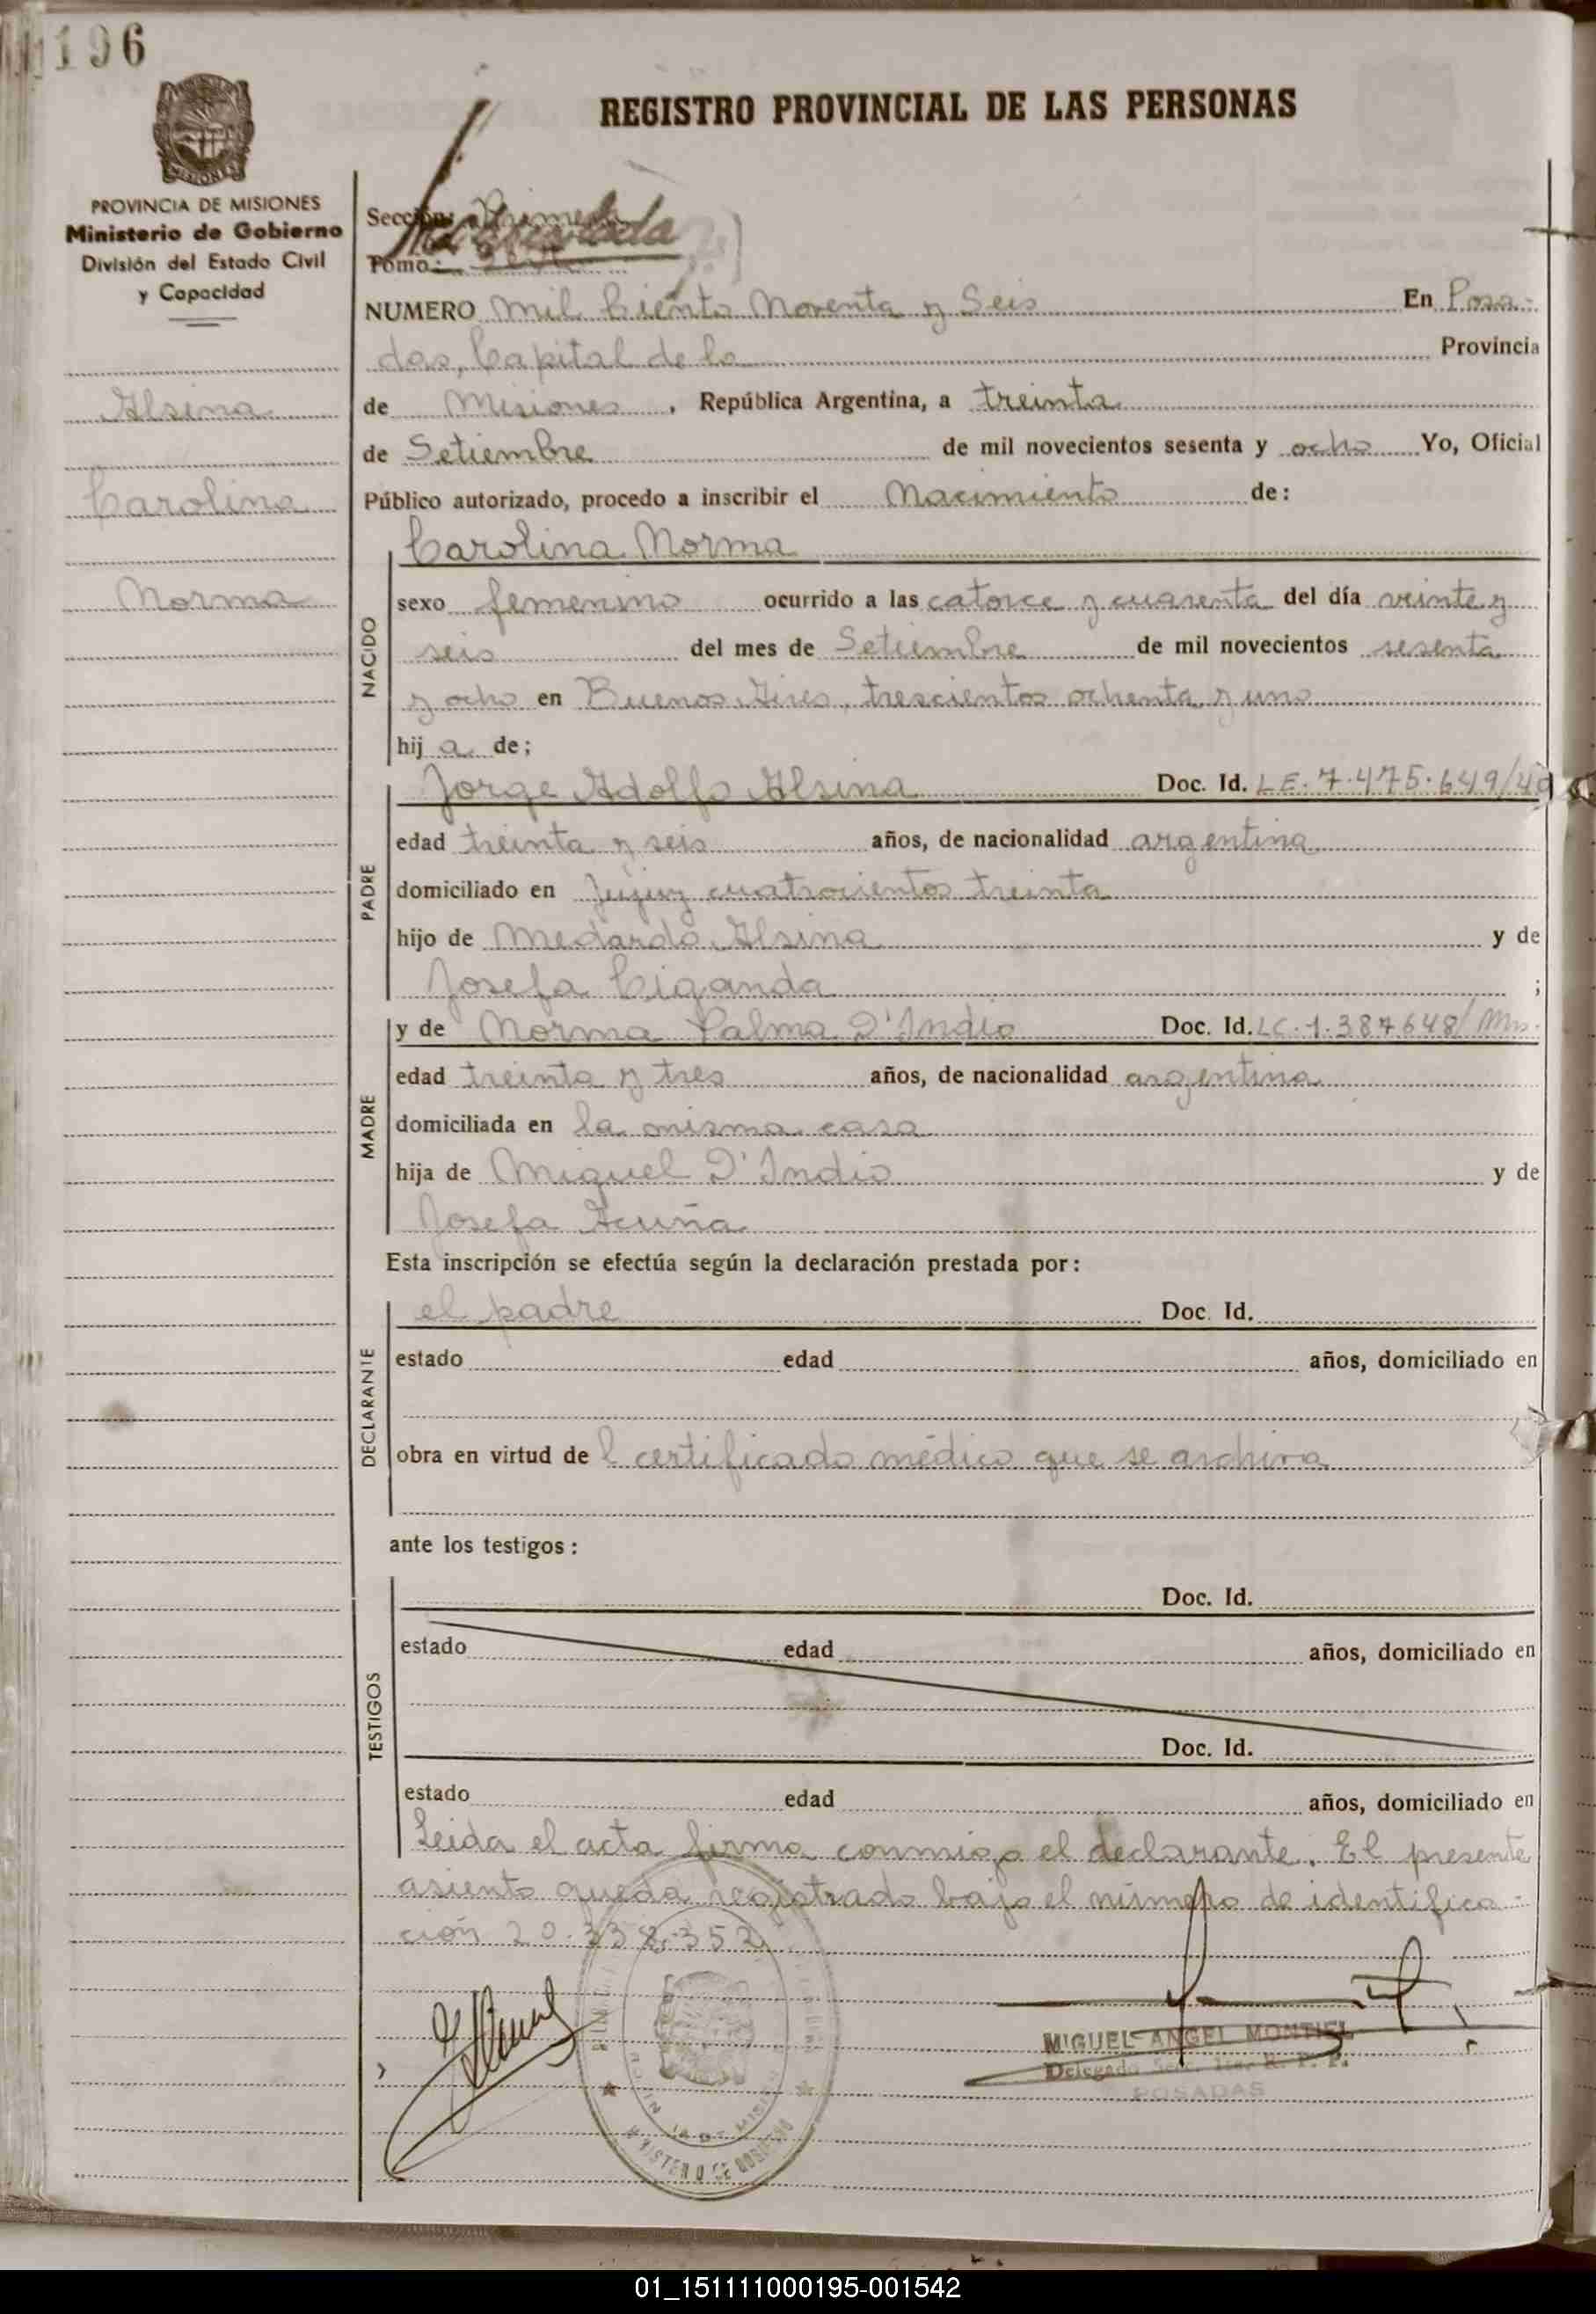 1196
REGISTRO PROVINCIAL DE LAS PERSONAS
MISIONES
PROVINCIA DE MISIONES
Ministerio de Gobierno
División del Estado Civil
y Capacidad
Alsina
Carolina
Norma
Sección: Primera
Tomo:
NUMERO Mil Ciento Noventa y Seis En Posa-
das, Capital de la Provincia
de Misiones, República Argentina, a treinta
de Setiembre de mil novecientos sesenta y ocho Yo, Oficial
Público autorizado, procedo a inscribir el Nacimiento de:
NACIDO
Carolina Norma
sexo femenino ocurrido a las catorce y cuarenta del día veinte y
seis del mes de Setiembre de mil novecientos sesenta
y ocho en Buenos Aires, trescientos ochenta y uno
hij a de;
PADRE
Jorge Adolfo Alsina Doc. Id. LE. 7.475.649/49
edad treinta y seis años, de nacionalidad argentina
domiciliado en Jujuy cuatrocientos treinta
hijo de Medardo Alsina y de
Josefa Ciganda ;
MADRE
y de Norma Palma D'Indio Doc. Id. LC. 1.387648/Mns.
edad treinta y tres años, de nacionalidad argentina
domiciliada en la misma casa
hija de Miguel D'Indio y de
Josefa Acuña
Esta inscripción se efectúa según la declaración prestada por:
DECLARANTE
el padre Doc. Id.
estado edad años, domiciliado en
obra en virtud de l certificado médico que se archiva
ante los testigos:
TESTIGOS
Doc. Id.
estado edad años, domiciliado en
Doc. Id.
estado edad años, domiciliado en
Leida el acta firma conmigo el declarante. El presente
asiento queda registrado bajo el número de identifica-
ción 20.338.352
MIGUEL ANGEL MONTIEL
Delegado Secc. 1ra. R. P. P.
POSADAS
MINISTERIO DE GOBIERNO
01_151111000195-001542